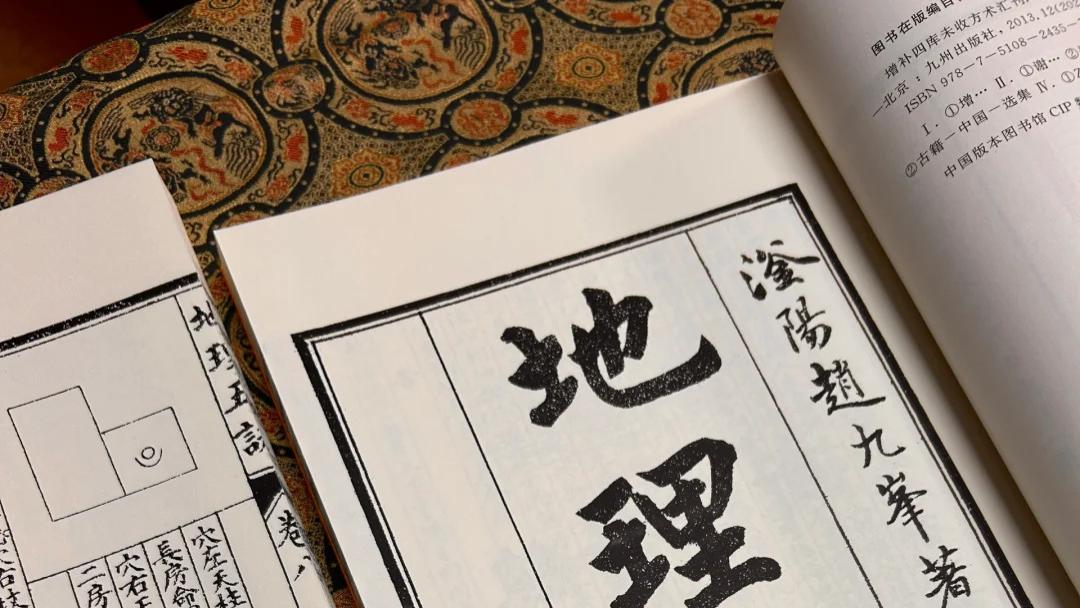 图书在版编目
增补四库未收方术汇刊
—北京：九州出版社，2013.12(202
ISBN 978-7-5108-2435-
Ⅰ.①增… Ⅱ.①谢…②
②古籍—中国—选集 Ⅳ.①Z
中国版本图书馆CIP
滏陽趙九峯著
地理
地理五訣
卷
穴左天柱
長房命
穴右
二房